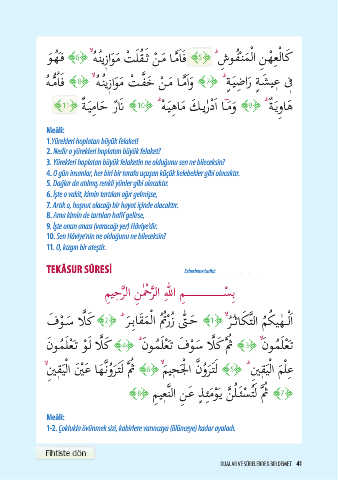 كَالْعِهْنِ الْمَنْفُوشِۜ ﴿5﴾ فَاَمَّا مَنْ ثَقُلَتْ مَوَازِينُهُۙ ﴿6﴾ فَهُوَ
فِى عِيشَةٍ رَاضِيَةٍۜ ﴿7﴾ وَاَمَّا مَنْ خَفَّتْ مَوَازِينُهُۙ ﴿8﴾ فَاُمُّهُ
هَاوِيَةٌۜ ﴿9﴾ وَمَٓا اَدْرٰيكَ مَاهِيَهْۜ ﴿10﴾ نَارٌ حَامِيَةٌ ﴿11﴾
Meâli:
1.Yürekleri hoplatan büyük felaket!
2. Nedir o yürekleri hoplatan büyük felaket?
3. Yürekleri hoplatan büyük felaketin ne olduğunu sen ne bileceksin?
4. O gün insanlar, her biri bir tarafa uçuşan küçük kelebekler gibi olacaktır.
5. Dağlar da atılmış renkli yünler gibi olacaktır.
6. İşte o vakit, kimin tartıları ağır gelmişse,
7. Artık o, hoşnut olacağı bir hayat içinde olacaktır.
8. Ama kimin de tartıları hafif gelirse,
9. İşte onun anası (varacağı yer) Hâviye'dir.
10. Sen Hâviye'nin ne olduğunu ne bileceksin?
11. O, kızgın bir ateştir.
TEKÂSUR SÛRESİ
بِسْمِ اللهِ الرَّحْمٰنِ الرَّحِيمِ
اَلْهٰيكُمُ التَّكَاثُرُۙ ﴿1﴾ حَتّٰى زُرْتُمُ الْمَقَابِرَۜ ﴿2﴾ كَلَّا سَوْفَ
تَعْلَمُونَۙ ﴿3﴾ ثُمَّ كَلَّا سَوْفَ تَعْلَمُونَۜ ﴿4﴾ كَلَّا لَوْ تَعْلَمُونَ
عِلْمَ الْيَقِينِۜ ﴿5﴾ لَتَرَوُنَّ الْجَحِيمَۙ ﴿6﴾ ثُمَّ لَتَرَوُنَّهَا عَيْنَ الْيَقِينِۙ
﴿7﴾ ثُمَّ لَتُسْـَٔلُنَّ يَوْمَئِذٍ عَنِ النَّعِيمِ ﴿8﴾
Meâli:
1-2. Çoklukla övünmek sizi, kabirlere varıncaya (ölünceye) kadar oyaladı.
Fihriste dön
DUALAR VE SÛRELERDEN BİR DEMET 41